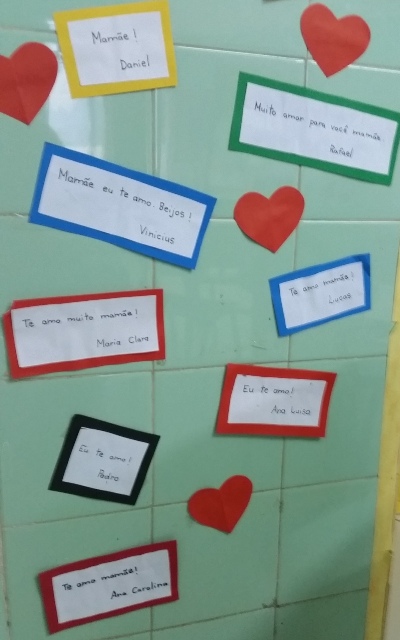 Mamãe!
Daniel
Muito amor para você mamãe
Rafael
Mamãe eu te amo. Beijos!
Vinicius
Te amo mamãe!
Lucas
Te amo muito mamãe!
Maria Clara
Eu te amo!
Ana Luisa
Eu te amo!
Pedro
Te amo mamãe!
Ana Carolina